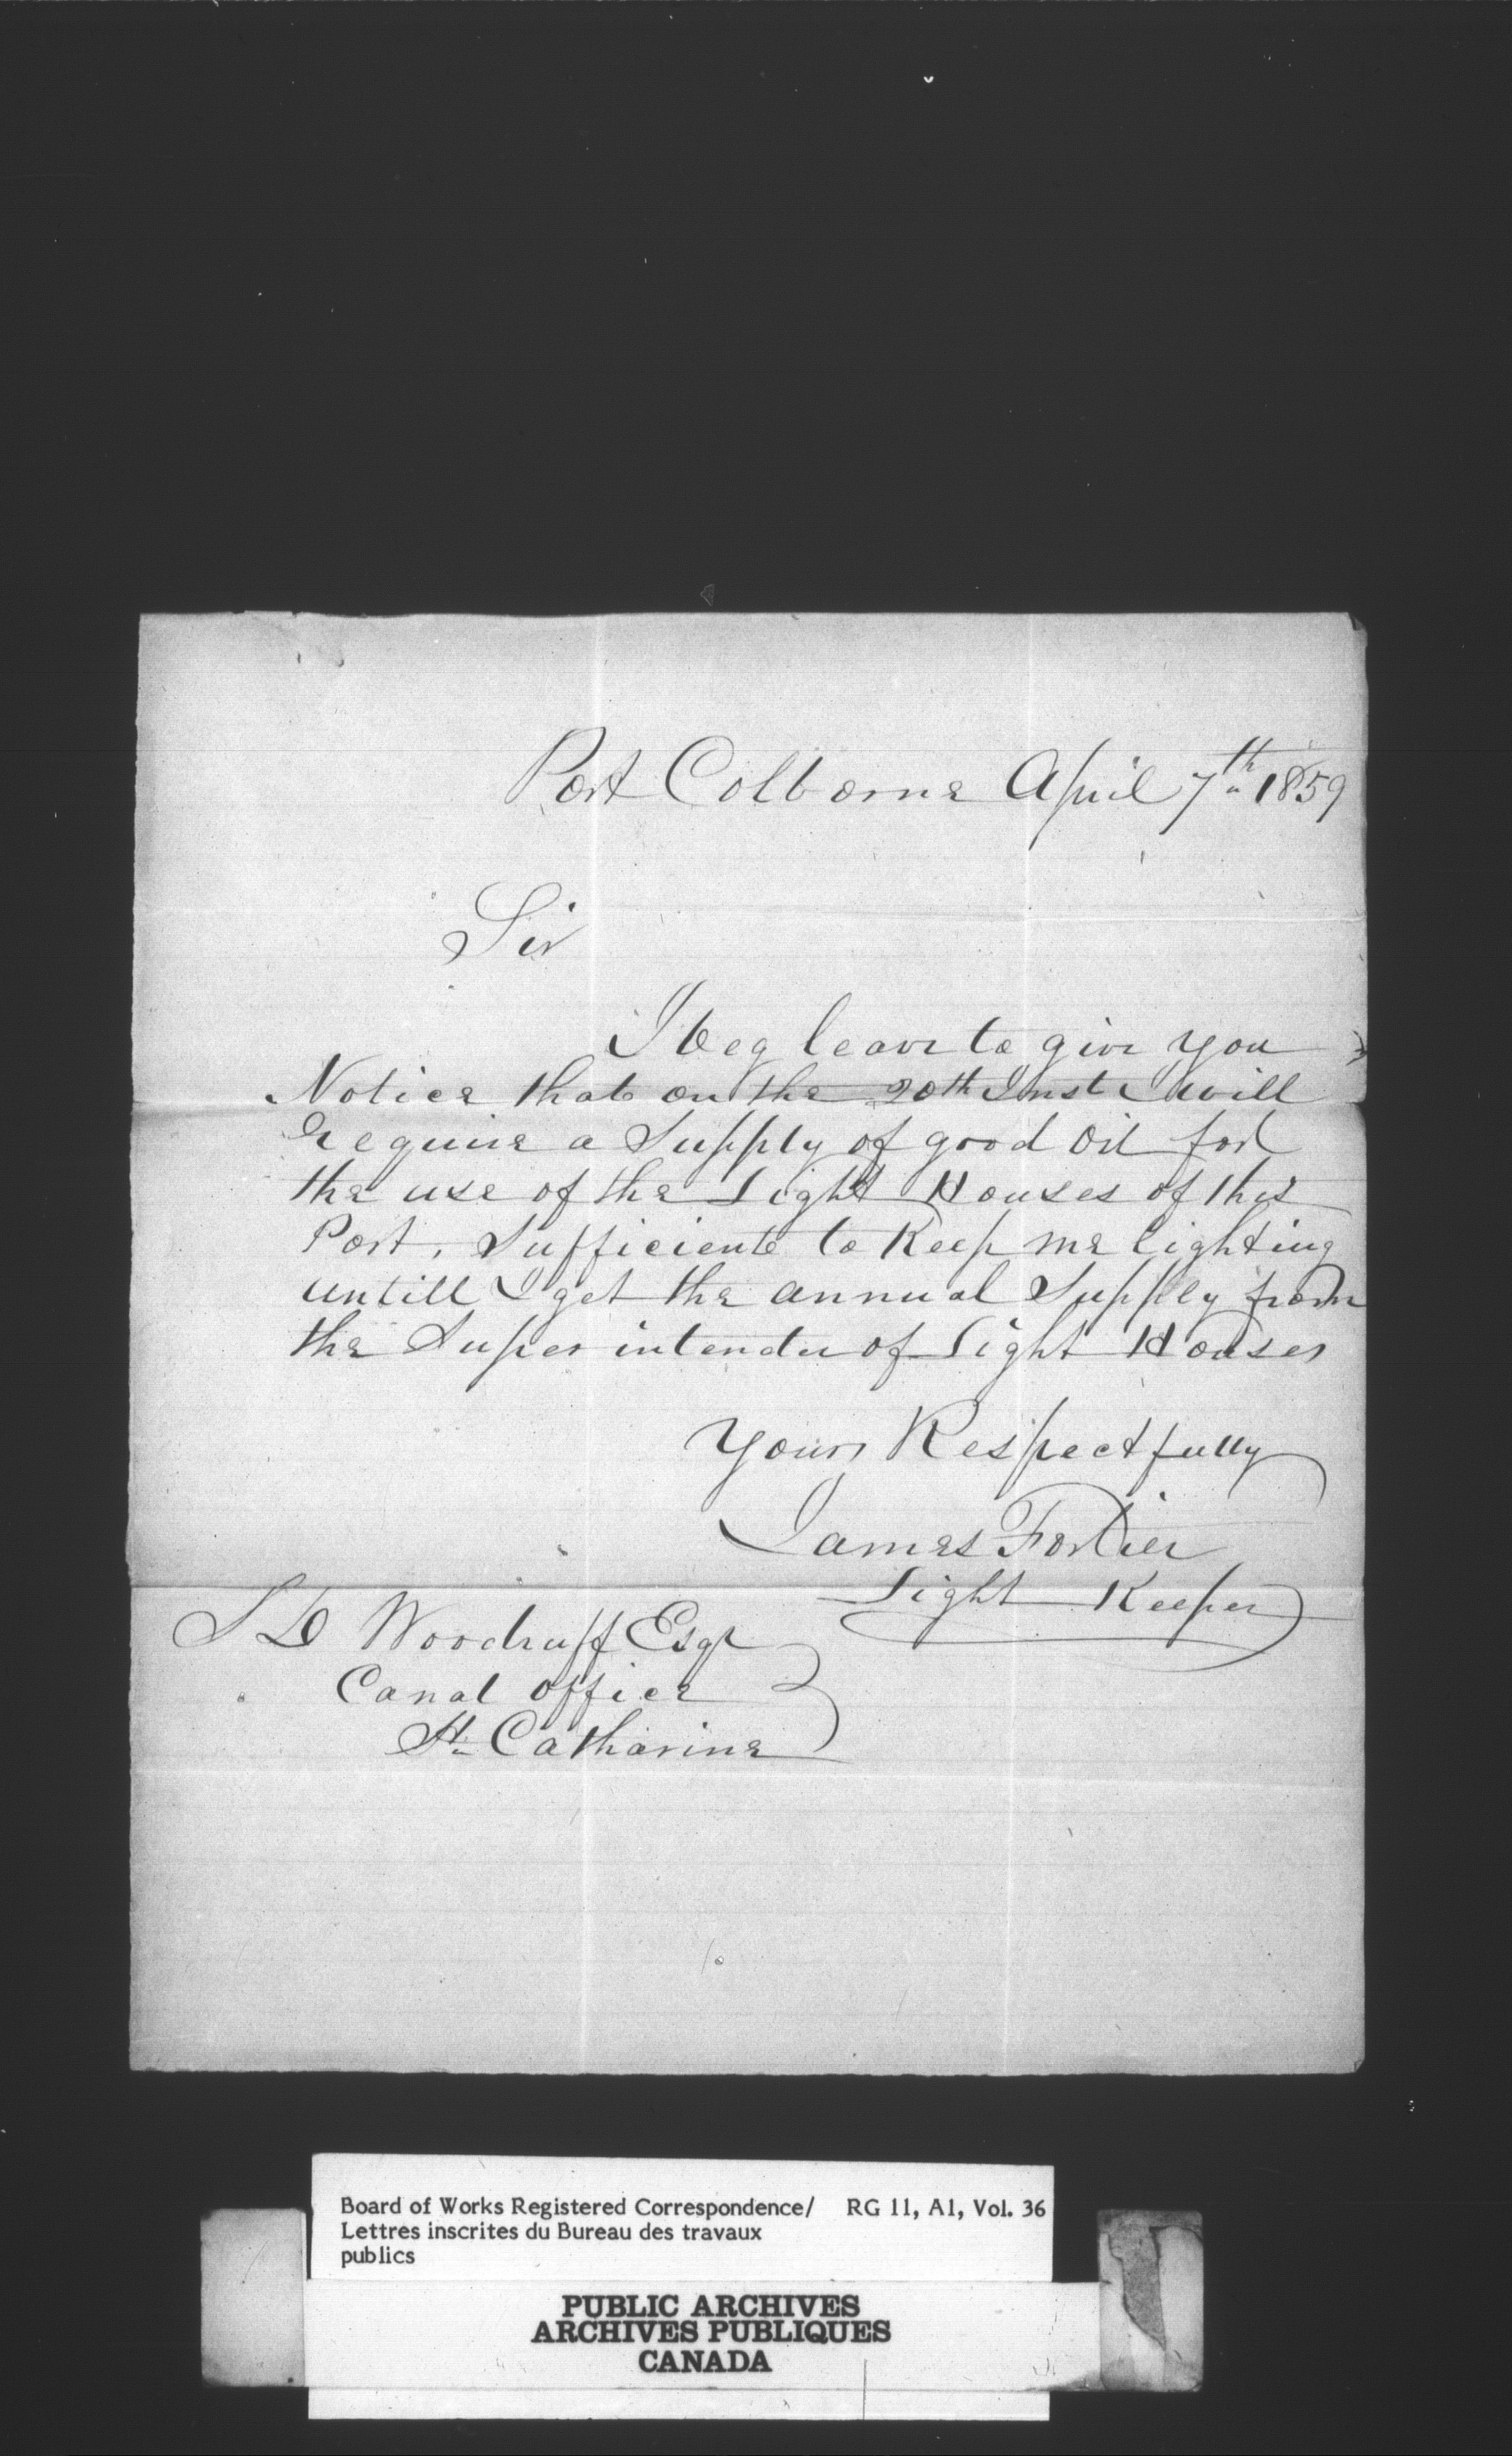 Port Colborne April 7th 1859
Sir
I beg leave to give you
Notice that on the 20th Inst I will
require a Supply of good Oil for
the use of the Light Houses of this
Port, Sufficiente to Keep me lighting
untill I get the annual Supply from
the Superintender of Light Houses
Yours Respectfully
James Fortier
Light Keeper
S D Woodruff Esqr
Canal office
St. Catharine
Board of Works Registered Correspondence/ RG 11, A1, Vol. 36
Lettres inscrites du Bureau des travaux
publics
PUBLIC ARCHIVES
ARCHIVES PUBLIQUES
CANADA